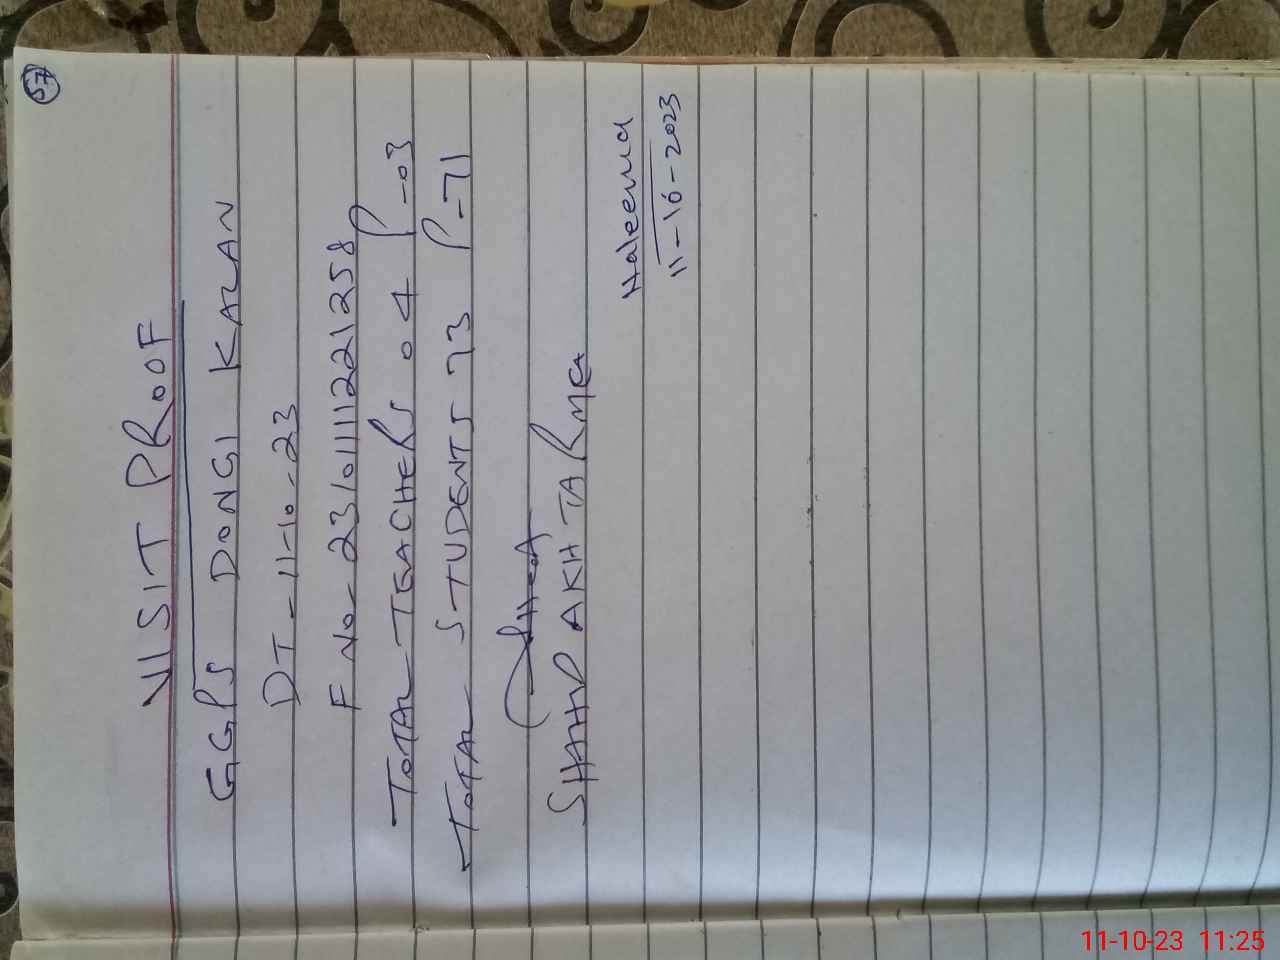 57
VISIT PROOF
GGPS DONGI KALAN
DT-11-10-23
F NO-23101111221258
TOTAL TEACHERS 04 P-03
TOTAL STUDENTS 73 P-71
SHAHID AKHTAR MEA
Haleema
11-10-2023
11-10-23 11:25